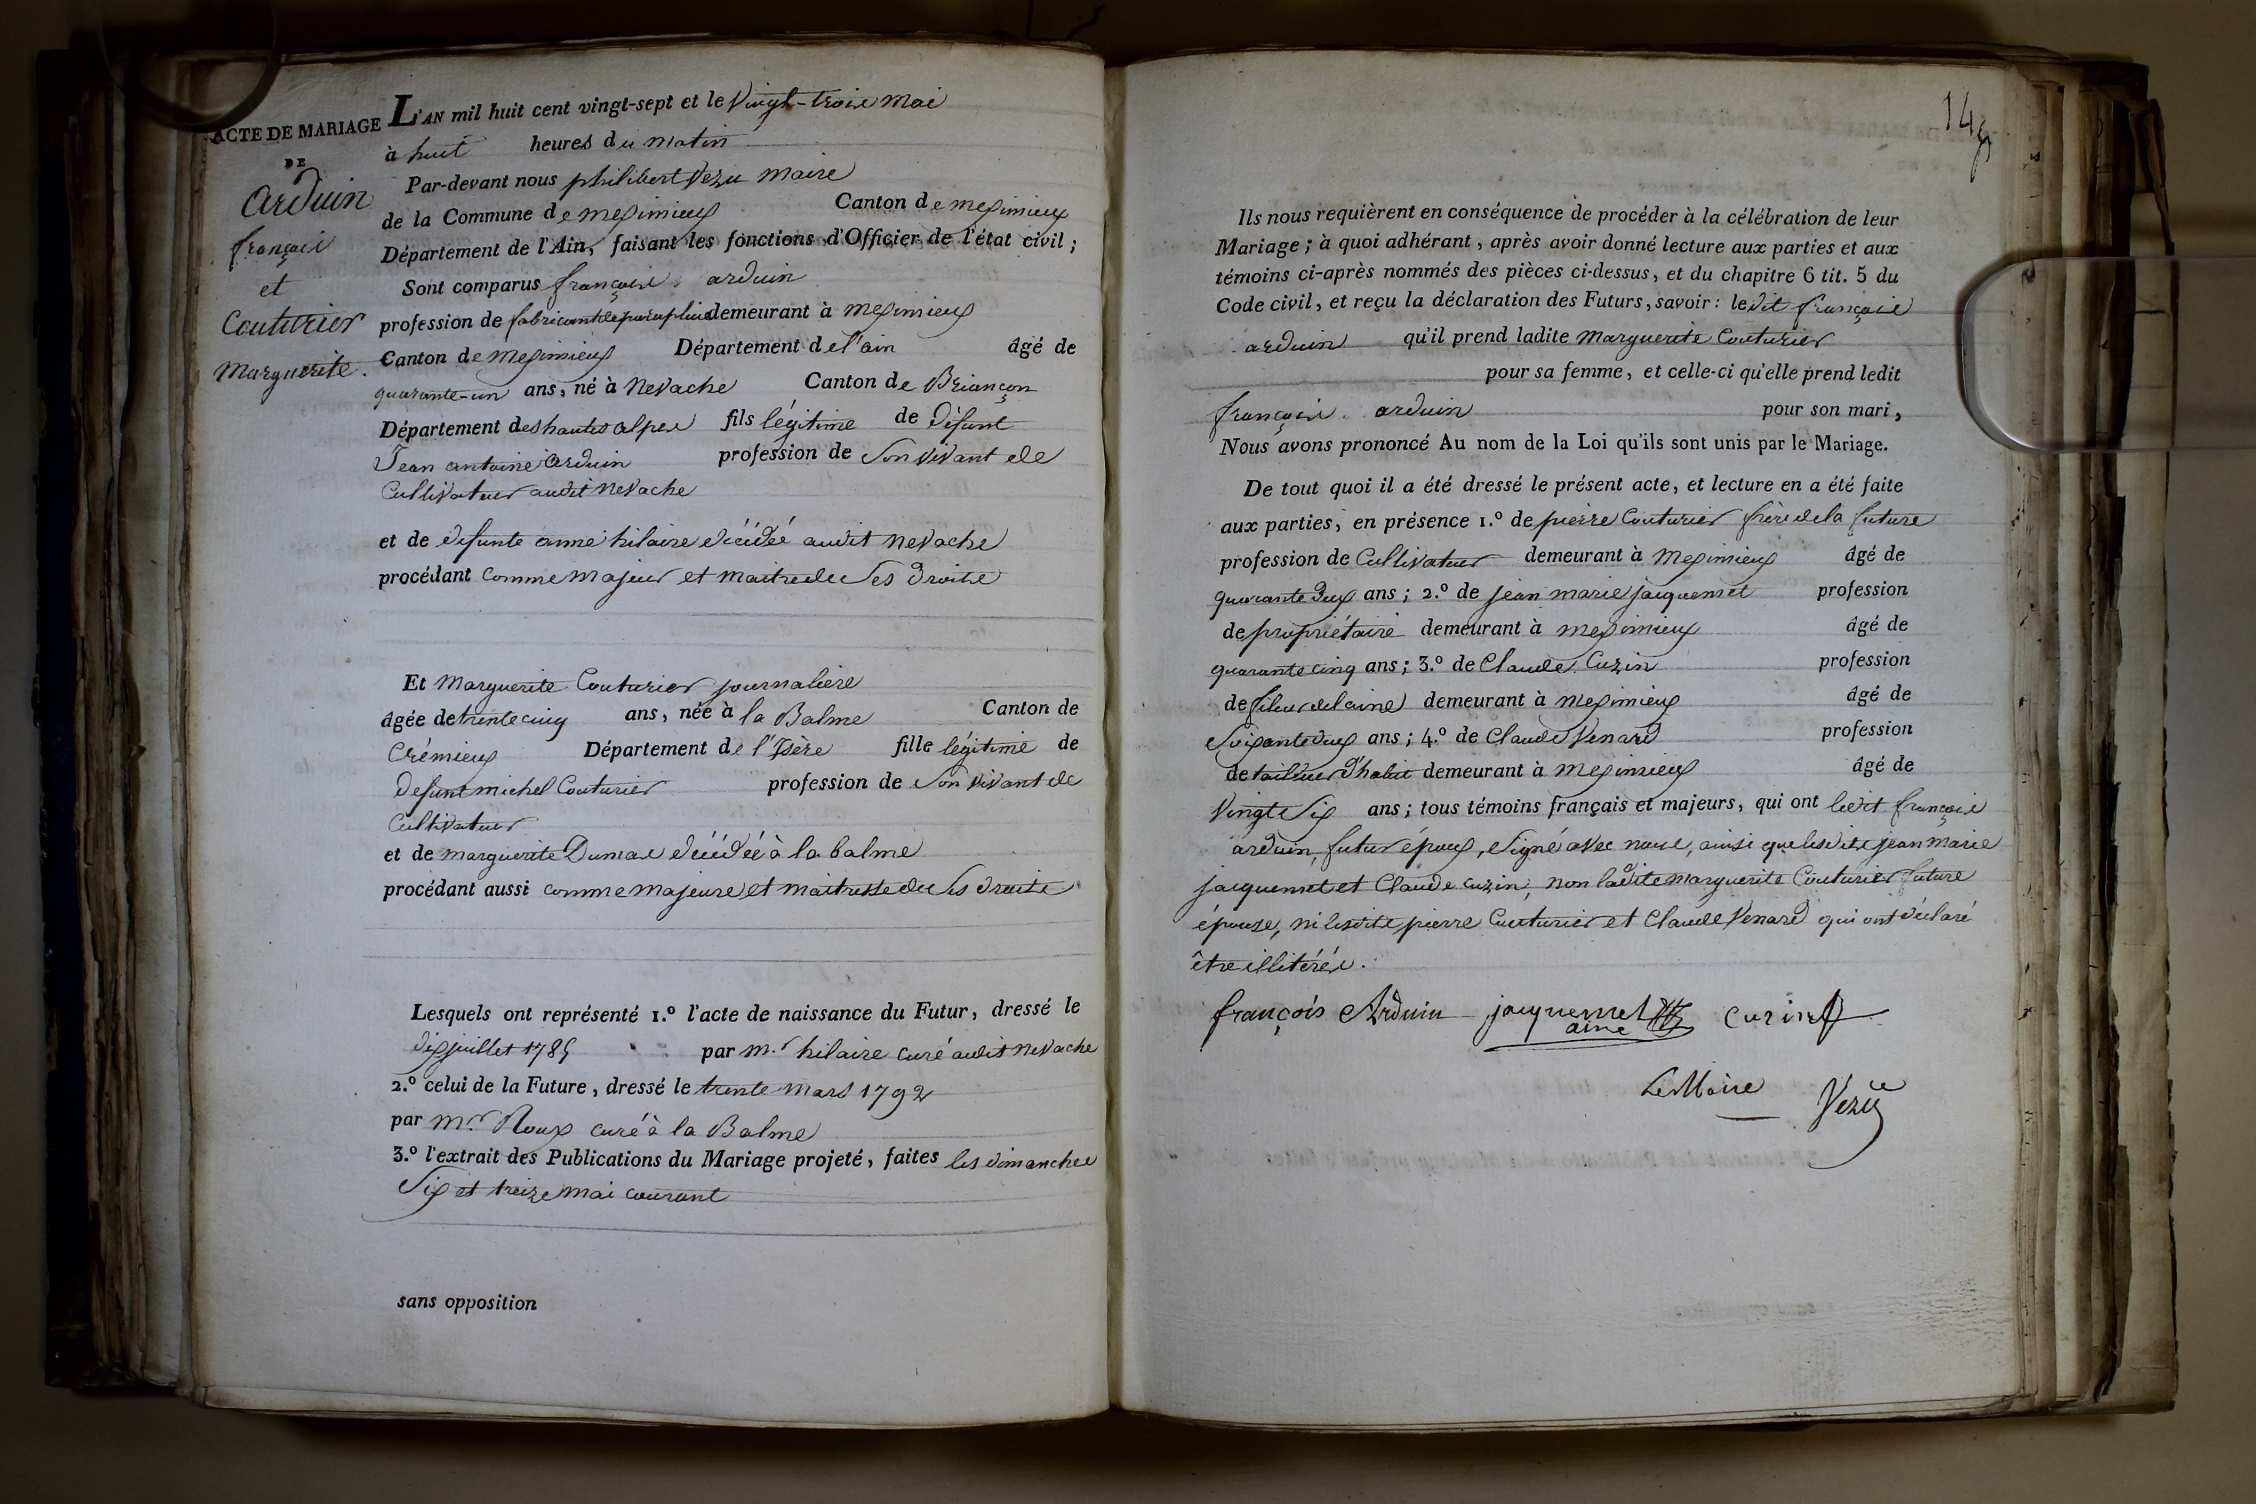 ACTE DE MARIAGE
DE
arduin
françois
et
Couturier
Marguerite.
L'AN mil huit cent vingt-sept et le Vingt-trois Mai
à huit heures du Matin
Par-devant nous philibert Vezu Maire
de la Commune de meximieux Canton de meximieux
Département de l'Ain, faisant les fonctions d'Officier de l'état civil ;
Sont comparus françois arduin
profession de fabricant de parapluie demeurant à Meximieux
Canton de Meximieux Département de l'ain âgé de
quarante-un ans, né à Nevache Canton de Briançon
Département des hautes alpes fils légitime de défunt
Jean antoine arduin profession de Son vivant de
Cultivateur audit Nevache
et de defunte anne hilaire décédée audit Nevache
procédant comme Majeur et maitre de Ses Droits
Et Marguerite Couturier journaliere
âgée de trente cinq ans, née à la Balme Canton de
Crémieux Département de l'Isère fille légitime de
defunt michel Couturier profession de Son vivant de
Cultivateur
et de marguerite Dumas décédée à la balme
procédant aussi comme majeure et maitresse de Ses droits
Lesquels ont représenté 1.º l'acte de naissance du Futur, dressé le
dix juillet 1785 par M.r hilaire curé audit Nevache
2.º celui de la Future, dressé le trente Mars 1792
par M.r Roux curé à la Balme
3.º l'extrait des Publications du Mariage projeté, faites les dimanches
Six et treize Mai courant
sans opposition
Ils nous requièrent en conséquence de procéder à la célébration de leur
Mariage ; à quoi adhérant, après avoir donné lecture aux parties et aux
témoins ci-après nommés des pièces ci-dessus, et du chapitre 6 tit. 5 du
Code civil, et reçu la déclaration des Futurs, savoir : ledit françois
arduin qu'il prend ladite Marguerite Couturier
pour sa femme, et celle-ci qu'elle prend ledit
françois arduin pour son mari,
Nous avons prononcé Au nom de la Loi qu'ils sont unis par le Mariage.
De tout quoi il a été dressé le présent acte, et lecture en a été faite
aux parties, en présence 1.º de pierre Couturier frère de la future
profession de Cultivateur demeurant à Meximieux âgé de
quarante deux ans ; 2.º de jean marie jacquemet profession
de propriétaire demeurant à meximieux âgé de
quarante cinq ans ; 3.º de Claude Cuzin profession
de fileur de laine demeurant à Meximieux âgé de
Soixante deux ans ; 4.º de Claude Venard profession
de tailleur d'habit demeurant à Meximieux âgé de
Vingt Six ans ; tous témoins français et majeurs, qui ont ledit françois
arduin, futur époux, Signé avec nous, ainsi que lesdits jean marie
jacquemet et Claude cuzin, non ladite marguerite Couturier future
épouse, ni lesdits pierre Couturier et Claude Venard qui ont déclaré
être illitérés.
françois Arduin jacquemet curin
aine
Le Maire Vezu